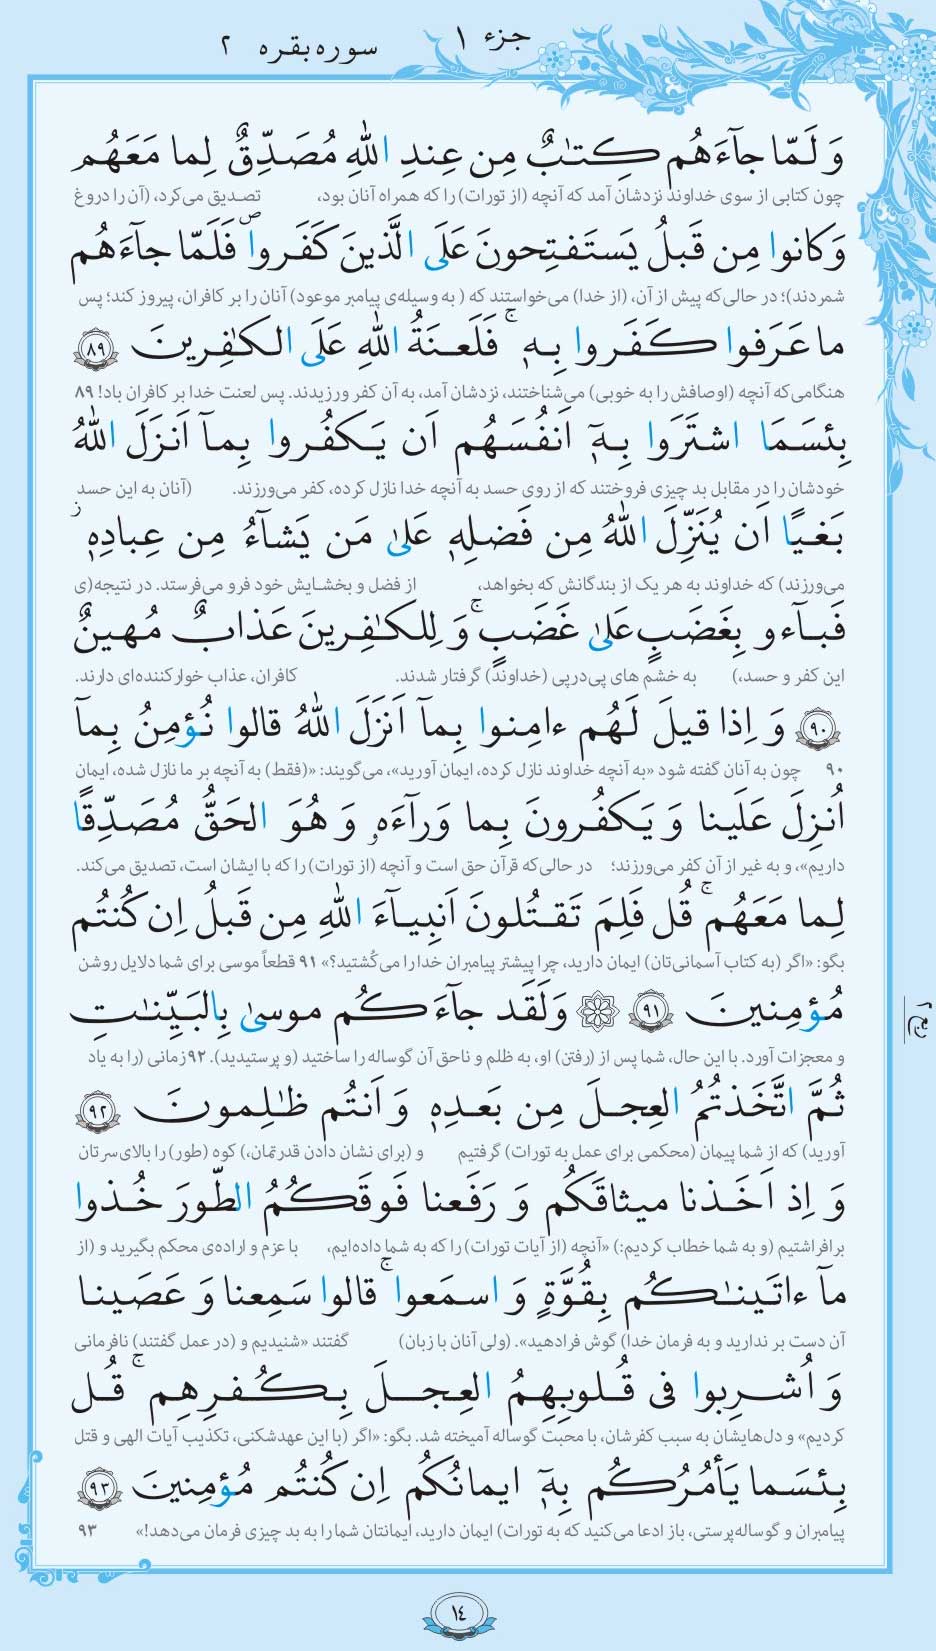 جزء ۱
سوره بقره ۲
وَ لَمّا جآءَهُم كِتٰبٌ مِن عِندِ اللّٰهِ مُصَدِّقٌ لِما مَعَهُم
چون کتابی از سوی خداوند نزدشان آمد که آنچه (از تورات) را که همراه آنان بود، تصدیق می‌کرد، (آن را دروغ
وَ كانوا مِن قَبلُ يَستَفتِحونَ عَلَى الَّذينَ كَفَروا ۖ فَلَمّا جآءَهُم
شمردند)؛ در حالی‌که پیش از آن، (از خدا) می‌خواستند که ( به وسیله‌ی پیامبر موعود) آنان را بر کافران، پیروز کند؛ پس
ما عَرَفوا كَفَروا بِهٖ ۚ فَلَعنَةُ اللّٰهِ عَلَى الكٰفِرينَ ۸۹
هنگامی‌که آنچه (اوصافش را به خوبی) می‌شناختند، نزدشان آمد، به آن کفر ورزیدند. پس لعنت خدا بر کافران باد! ۸۹
بِئسَمَا اشتَرَوا بِهٖٓ اَنفُسَهُم اَن يَكفُروا بِمآ اَنزَلَ اللّٰهُ
خودشان را در مقابل بد چیزی فروختند که از روی حسد به آنچه خدا نازل کرده، کفر می‌ورزند. (آنان به این حسد
بَغيًا اَن يُنَزِّلَ اللّٰهُ مِن فَضلِهٖ عَلىٰ مَن يَشآءُ مِن عِبادِهٖ ز
می‌ورزند) که خداوند به هر یک از بندگانش که بخواهد، از فضل و بخشایش خود فرو می‌فرستد. در نتیجه(ی
فَبآءو بِغَضَبٍ عَلىٰ غَضَبٍ ۚ وَ لِلكٰفِرينَ عَذابٌ مُهينٌ
این کفر و حسد،) به خشم های پی‌درپی (خداوند) گرفتار شدند. کافران، عذاب خوارکننده‌ای دارند.
۹۰ وَ اِذا قيلَ لَهُم ءامِنوا بِمآ اَنزَلَ اللّٰهُ قالوا نُؤمِنُ بِمآ
۹۰ چون به آنان گفته شود «به آنچه خداوند نازل کرده، ایمان آورید»، می‌گویند: «(فقط) به آنچه بر ما نازل شده، ایمان
اُنزِلَ عَلَينا وَ يَكفُرونَ بِما وَرآءَهٗ وَ هُوَ الحَقُّ مُصَدِّقًا
داریم»، و به غیر از آن کفر می‌ورزند؛ در حالی‌که قرآن حق است و آنچه (از تورات) را که با ایشان است، تصدیق می‌کند.
لِما مَعَهُم ۚ قُل فَلِمَ تَقتُلونَ اَنبِيآءَ اللّٰهِ مِن قَبلُ اِن كُنتُم
بگو: «اگر (به کتاب آسمانی‌تان) ایمان دارید، چرا پیشتر پیامبران خدا را می‌کُشتید؟» ۹۱ قطعاً موسی برای شما دلایل روشن
مُؤمِنينَ ۹۱ ۞ وَلَقَد جآءَكُم موسىٰ بِالبَيِّنٰتِ
و معجزات آورد. با این حال، شما پس از (رفتن) او، به ظلم و ناحق آن گوساله را ساختید (و پرستیدید). ۹۲ زمانی (را به یاد
ربع ۲
ثُمَّ اتَّخَذتُمُ العِجلَ مِن بَعدِهٖ وَ اَنتُم ظٰلِمونَ ۹۲
آورید) که از شما پیمان (محکمی برای عمل به تورات) گرفتیم و (برای نشان دادن قدرتمان،) کوه (طور) را بالای سرتان
وَ اِذ اَخَذنا ميثاقَكُم وَ رَفَعنا فَوقَكُمُ الطّورَ خُذوا
برافراشتیم (و به شما خطاب کردیم:) «آنچه (از آیات تورات) را که به شما داده‌ایم، با عزم و اراده‌ی محکم بگیرید و (از
مآ ءاتَينٰكُم بِقُوَّةٍ وَ اسمَعوا ۚ قالوا سَمِعنا وَ عَصَينا
آن دست بر ندارید و به فرمان خدا) گوش فرادهید». (ولی آنان با زبان) گفتند «شنیدیم و (در عمل گفتند) نافرمانی
وَ اُشرِبوا فى قُلوبِهِمُ العِجلَ بِكُفرِهِم ۚ قُل
کردیم» و دل‌هایشان به سبب کفرشان، با محبت گوساله آمیخته شد. بگو: «اگر (با این عهدشکنی، تکذیب آیات الهی و قتل
بِئسَما يَأمُرُكُم بِهٖٓ ايمانُكُم اِن كُنتُم مُؤمِنينَ ۹۳
پیامبران و گوساله‌پرستی، باز ادعا می‌کنید که به تورات) ایمان دارید، ایمانتان شما را به بد چیزی فرمان می‌دهد!» ۹۳
١٤